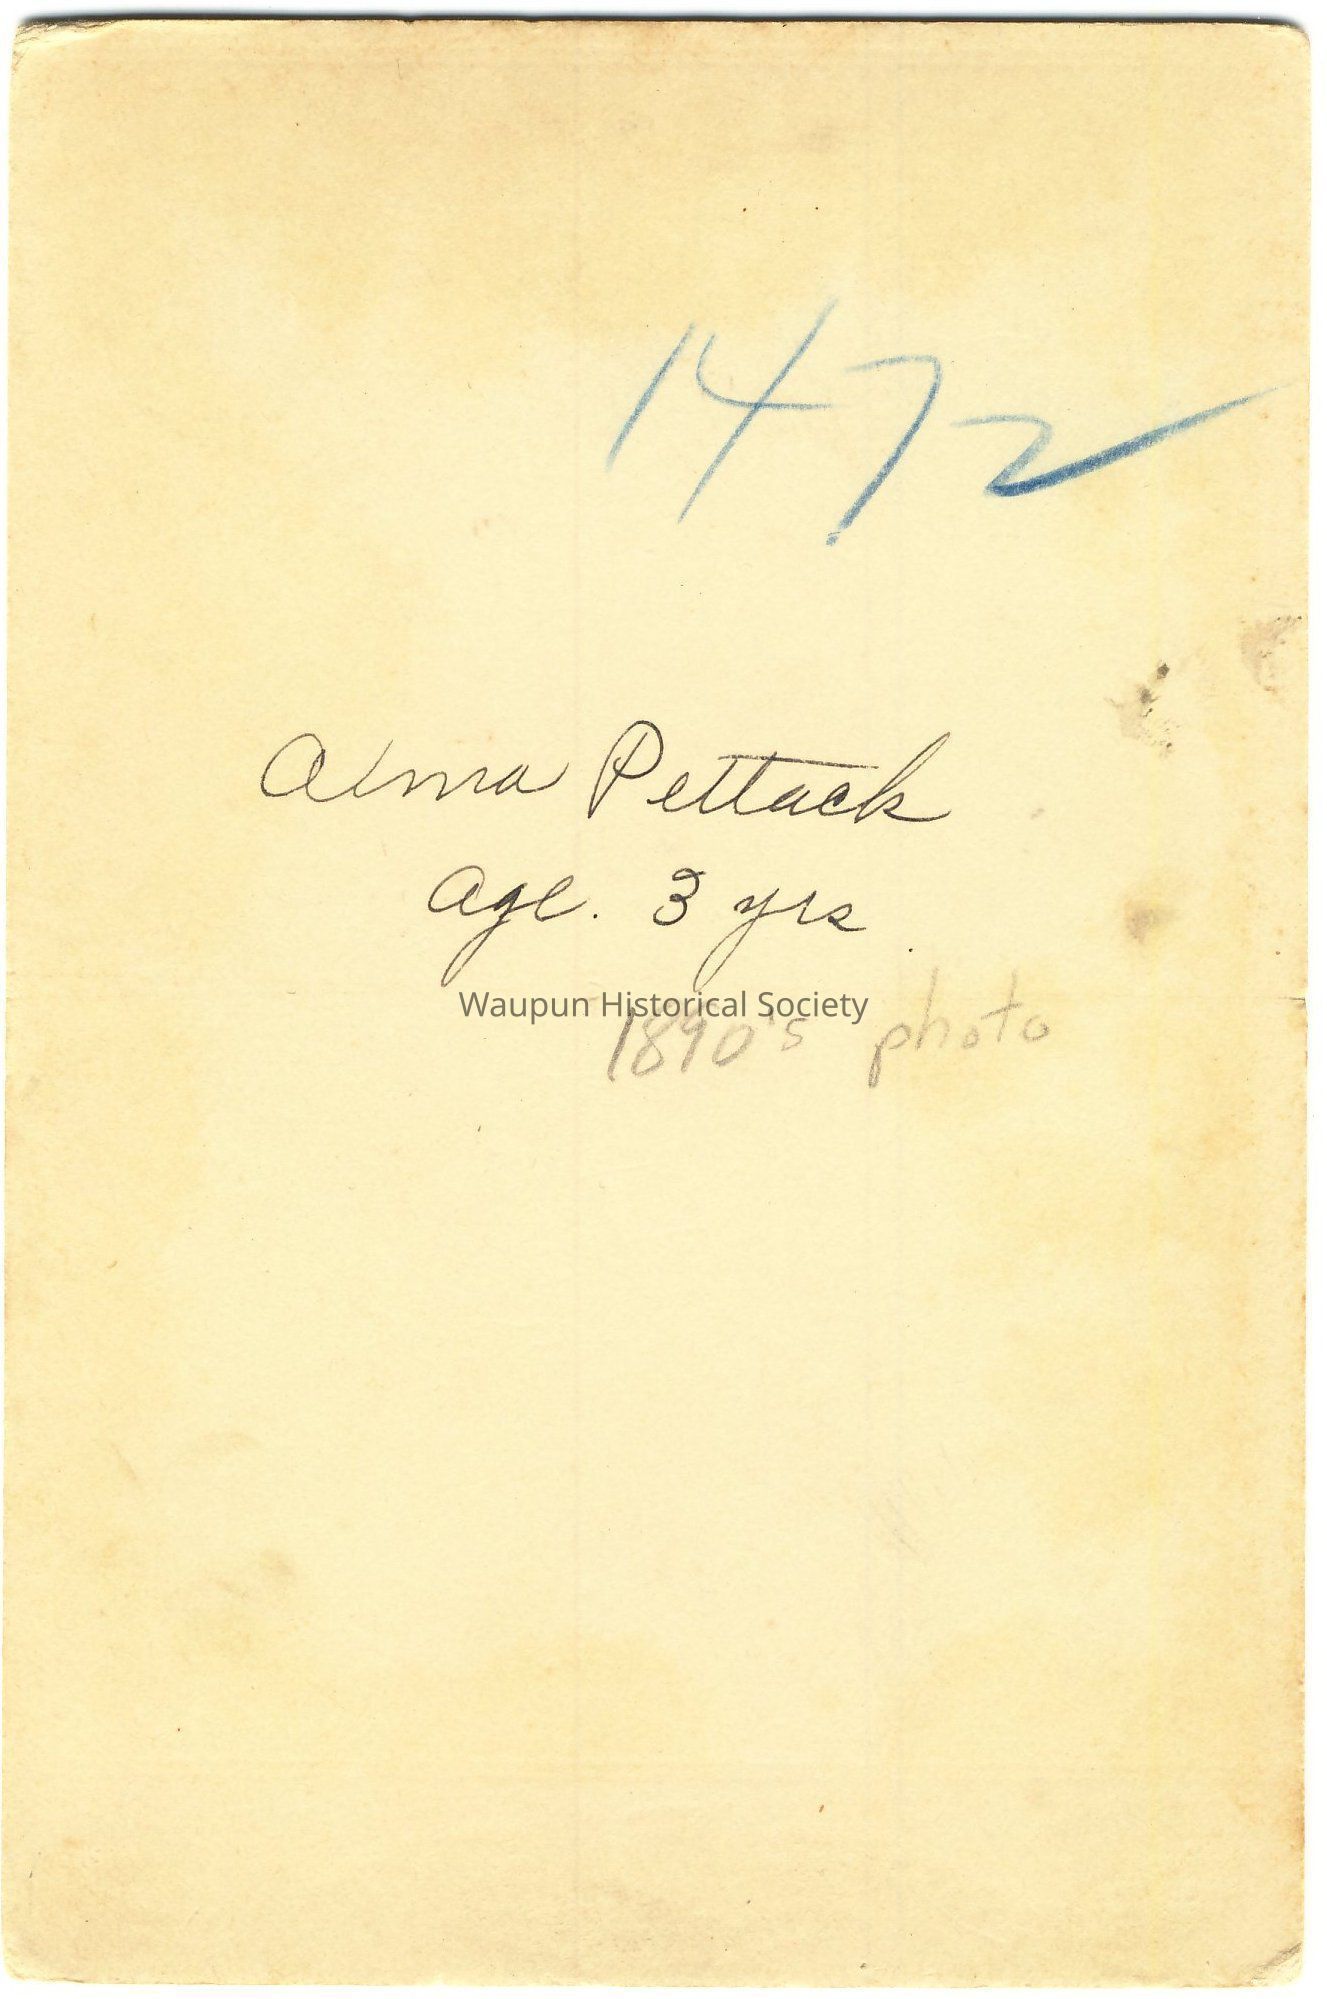 1472
Alma Pettack
age. 3 yrs.
Waupun Historical Society
1890's photo